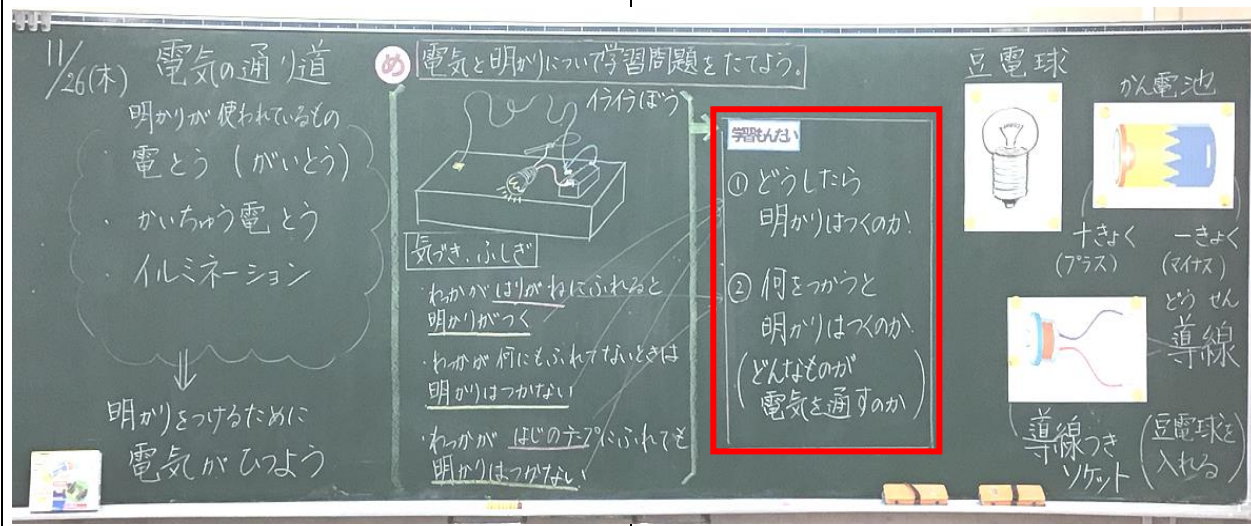 11/26(木)
電気の通り道
明かりが使われているもの
・電とう(がいとう)
・かいちゅう電とう
・イルミネーション
明かりをつけるために
電気がひつよう
め
電気と明かりについて学習問題をたてよう。
イライラぼう
気づき、ふしぎ
・わっかがはりがねにふれると
明かりがつく
・わっかが何にもふれてないときは
明かりはつかない
・わっかがはじのテープにふれても
明かりはつかない
学習もんだい
① どうしたら
明かりはつくのか!
② 何をつかうと
明かりはつくのか!
(どんなものが
電気を通すのか)
豆電球
かん電池
+きょく
(プラス)
−きょく
(マイナス)
どうせん
導線
導線つき
ソケット
(豆電球を
入れる)